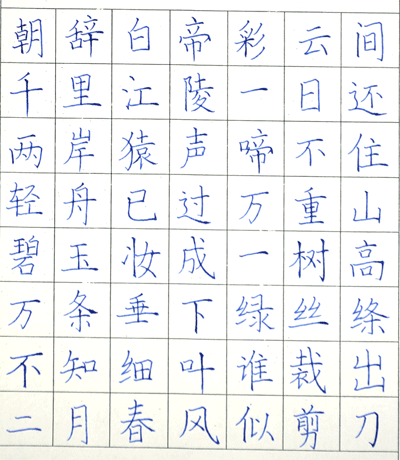 朝辞白帝彩云间
千里江陵一日还
两岸猿声啼不住
轻舟已过万重山
碧玉妆成一树高
万条垂下绿丝绦
不知细叶谁裁出
二月春风似剪刀